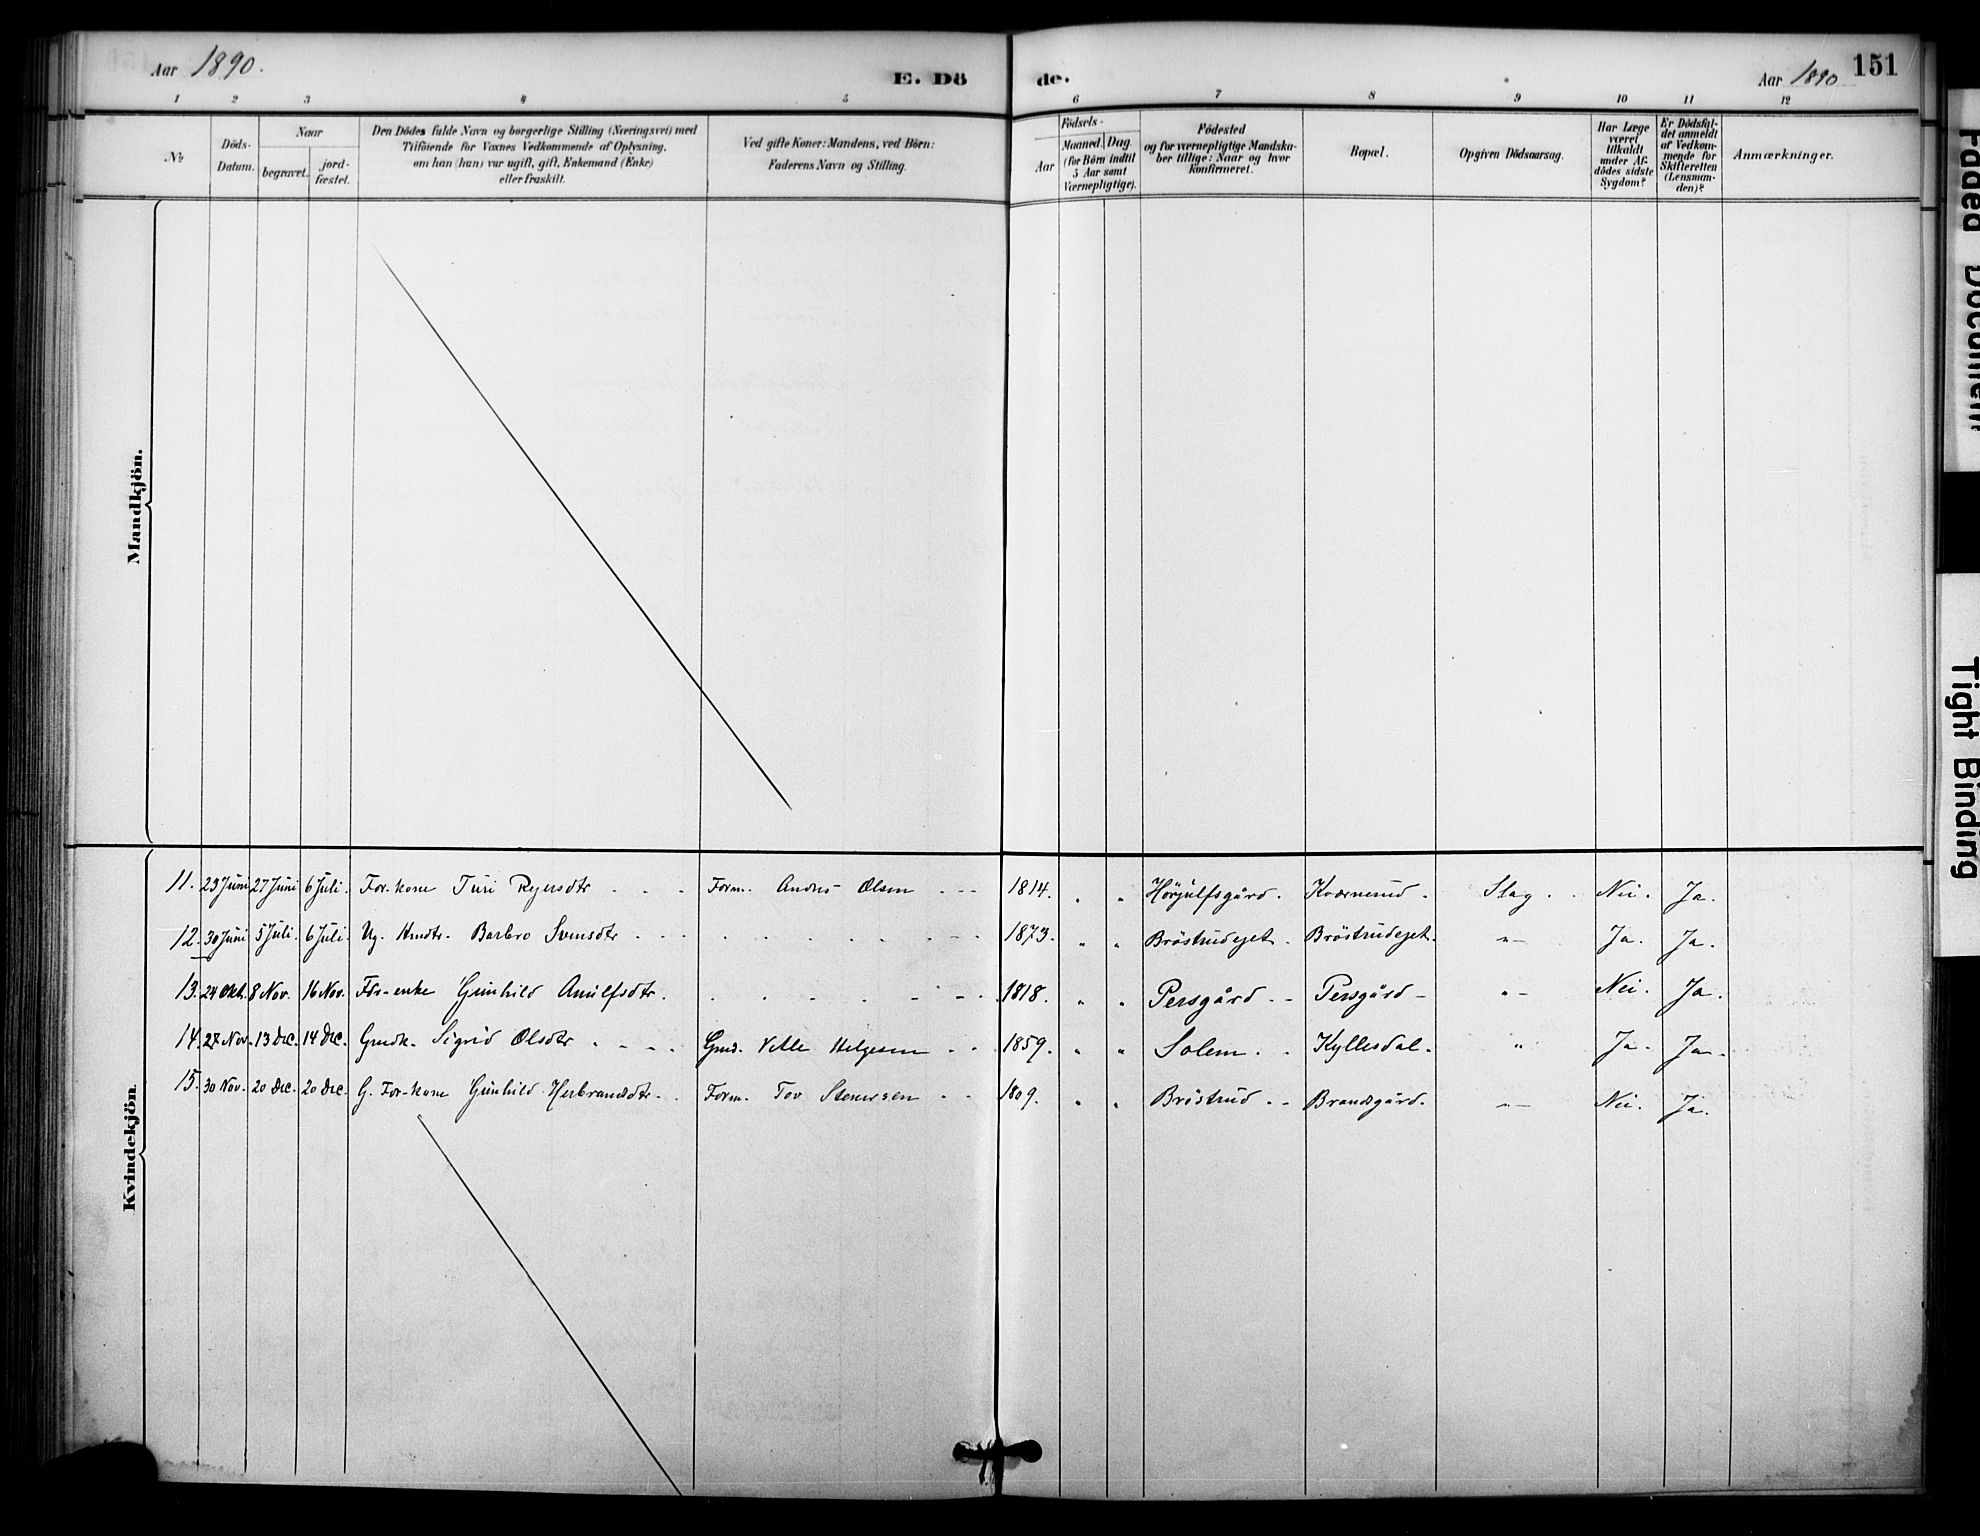 Aar 1890.
E. Dö
de.
Aar 1890
151
1 2 3 4 5 6 7 8 9 10 11 12
№
Döds-Datum.
Naar
begravet.
jord-fæstet.
Den Dödes fulde Navn og borgerlige Stilling (Næringsvei) med
Tilföiende for Voxnes Vedkommende af Oplysning,
om han (hun) var ugift, gift, Enkemand (Enke)
eller fraskilt.
Ved gifte Koner: Mandens, ved Börn:
Faderens Navn og Stilling.
Födsels-
Aar
Maaned. Dag.
(for Börn indtil
5 Aar samt
Værnepligtige).
Födested
og for værnepligtige Mandska-
ber tillige: Naar og hvor
konfirmeret.
Bopæl.
Opgiven Dödsaarsag.
Har Læge
været
tilkaldt
under Af-
dödes sidste
Sygdom?
Er Dödsfal-
det anmeldt
af Vedkom-
mende for
Skifteretten
(Lensman-
den)?
Anmærkninger.
Mandkjön.
Kvindekjön.
11. 23 Juni 27 Juni 6 Juli. For-kone Turi Reiersdtr - - - Form. Andres Olsen - - - 1814. " " Hörjulfsgård. Kværnerud. Slag. Nei. Ja.
12. 30 Juni 5 Juli. 6 Juli. Ug. Barbro Svensdtr - - - 1873. " " Bröstrudejet. Bröstrudejet. -"- Ja. Ja.
13. 24 Okt. 8 Nov. 16 Nov. For-enke Gunhild Arnulfsdtr. 1818. " " Persgård. - Persgård - "- Nei. Ja.
14. 27 Nov. 13 Dec. 14 Dec. Gmdk. Sigrid Olsdtr - - - Gmd. Velle Helgesen - - 1859. " " Solem. - Kyllesdal. " Ja. Ja.
15. 30 Nov. 20 Dec. 20 Dec. G. For-kone Gunhild Herbrandsdtr. - Form. Tov Stenersen - - 1809. " " Bröstrud. - Brandsgård. -"- Nei. Ja.
Faded Document
Tight Binding